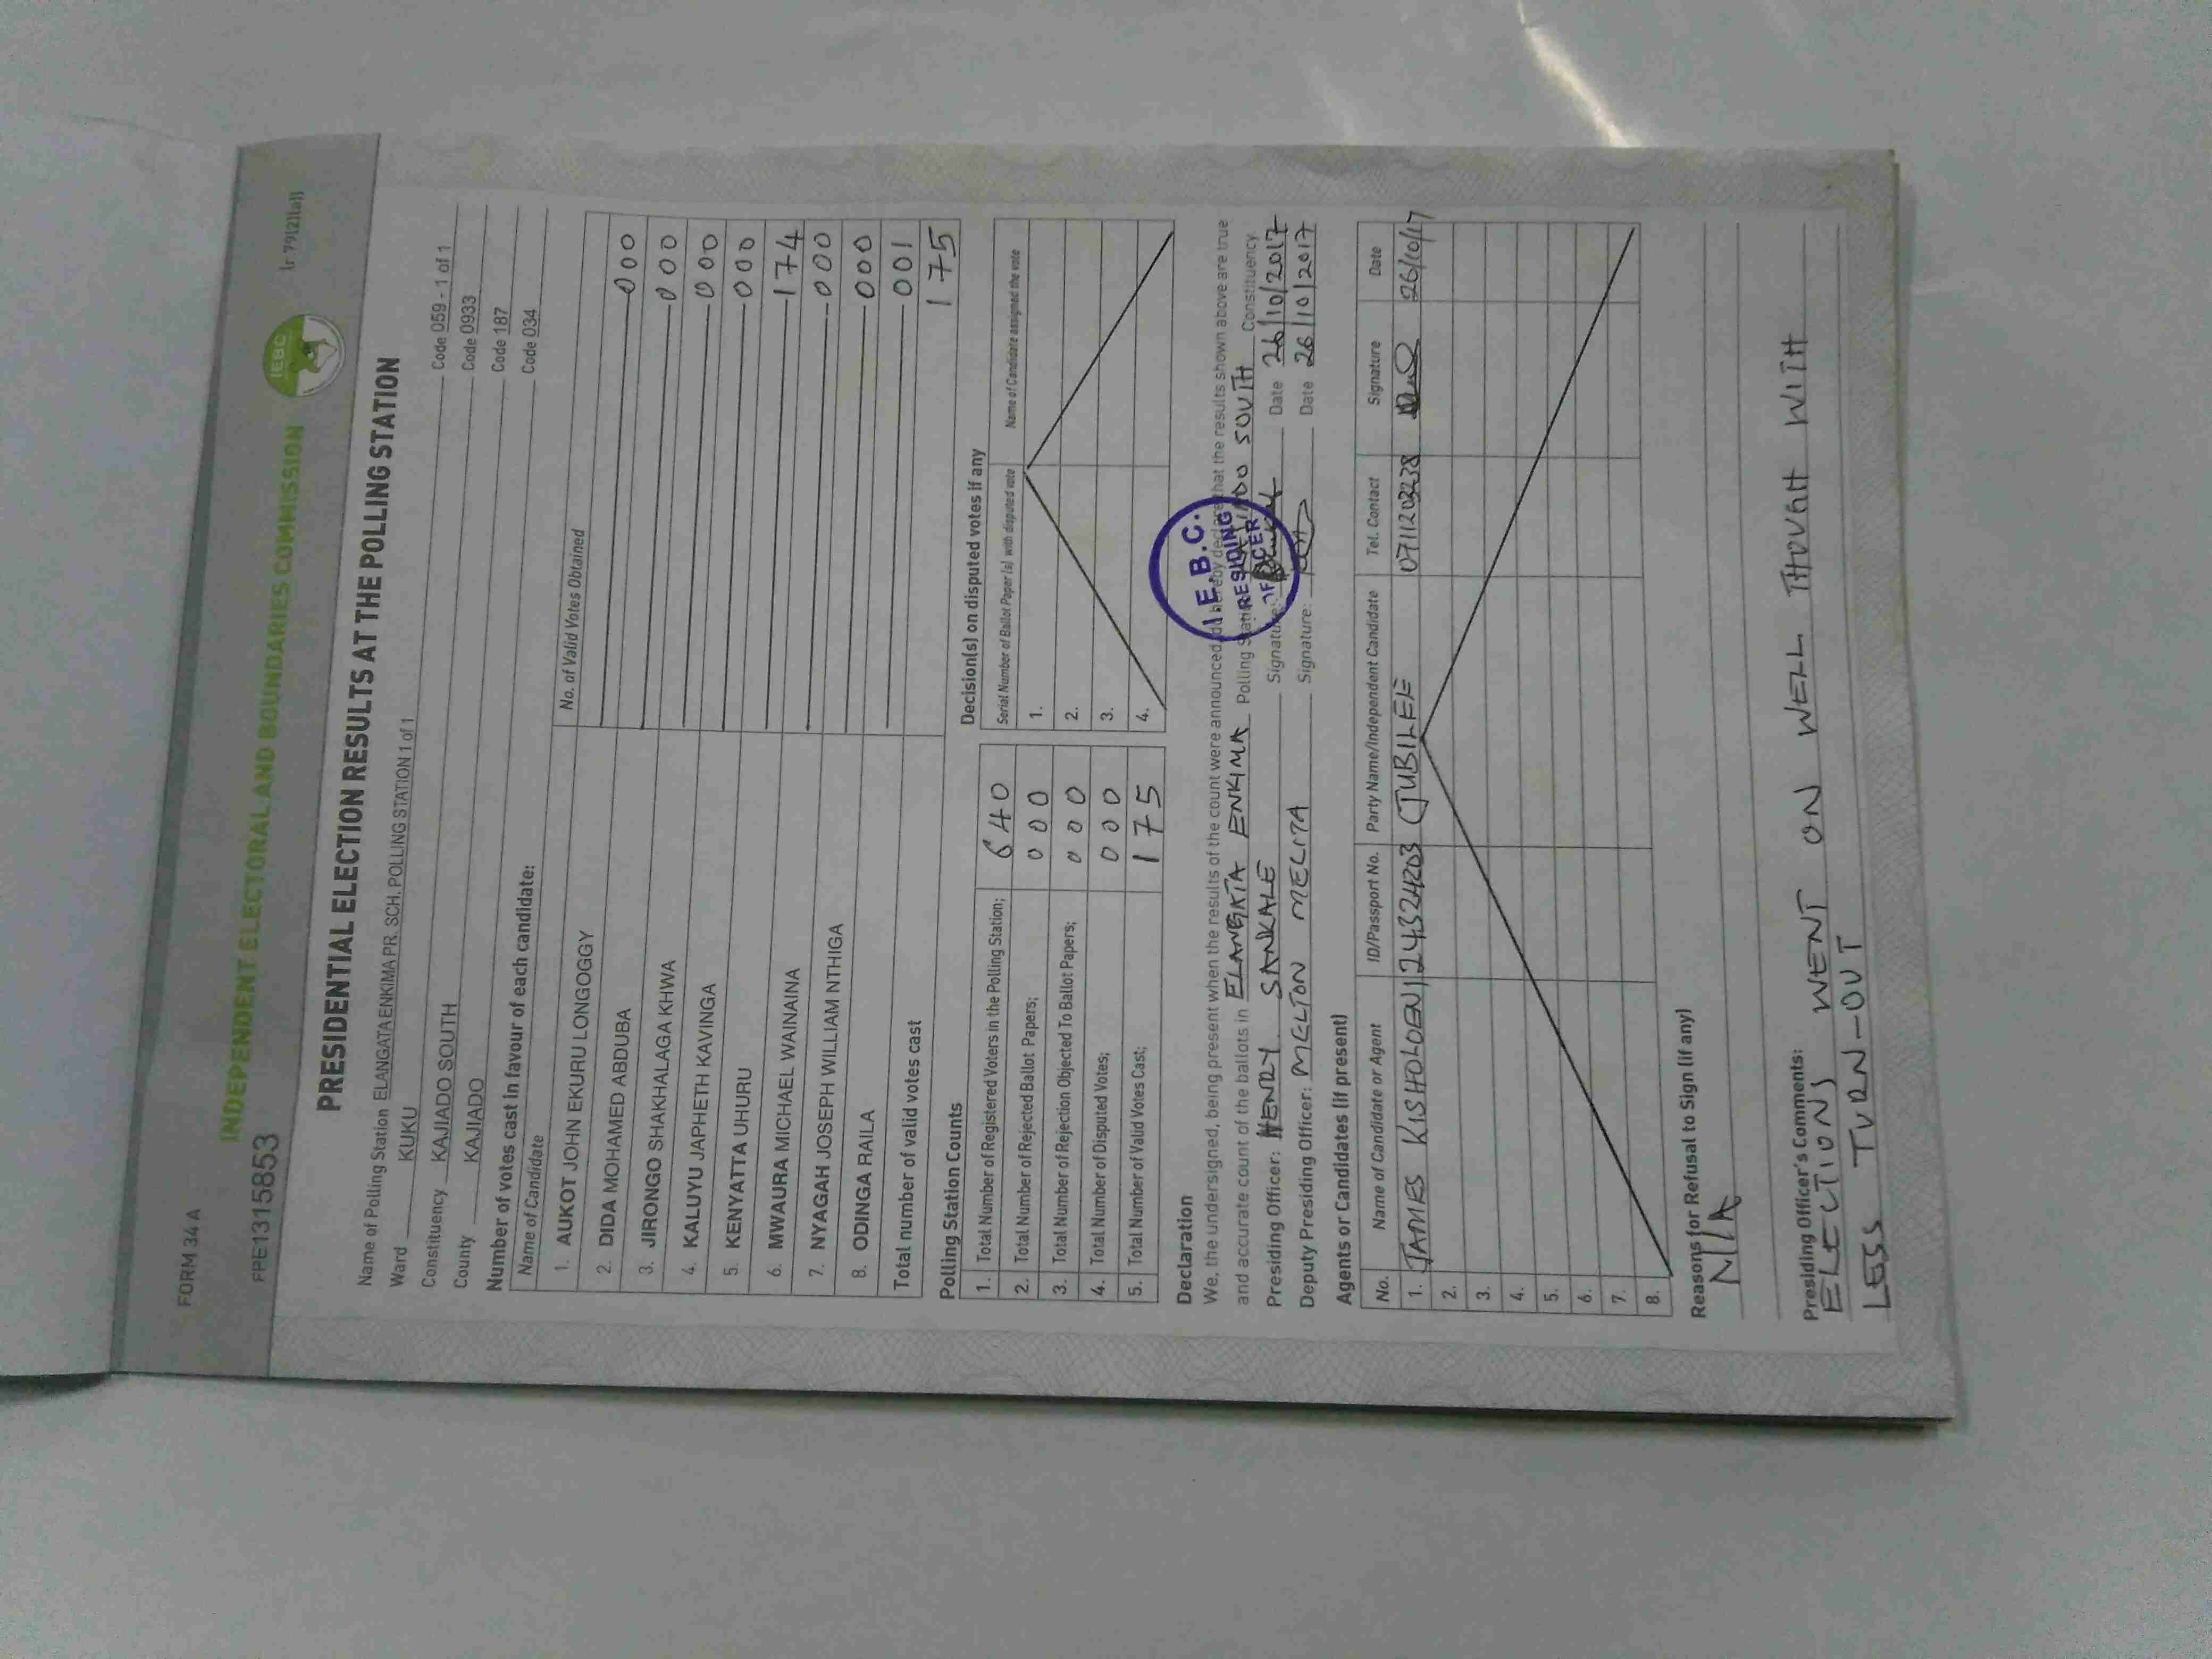 FORM 34 A
INDEPENDENT ELECTORAL AND BOUNDARIES COMMISSION
IEBC
FPE1315853
(r 79(2)(a))
PRESIDENTIAL ELECTION RESULTS AT THE POLLING STATION
Name of Polling Station ELANGATA ENKIMA PR. SCH. POLLING STATION 1 of 1 Code 059 - 1 of 1
Ward KUKU Code 0933
Constituency KAJIADO SOUTH Code 187
County KAJIADO Code 034
Number of votes cast in favour of each candidate:
Name of Candidate No. of Valid Votes Obtained
1. AUKOT JOHN EKURU LONGOGGY 000
2. DIDA MOHAMED ABDUBA 000
3. JIRONGO SHAKHALAGA KHWA 000
4. KALUYU JAPHETH KAVINGA 000
5. KENYATTA UHURU 174
6. MWAURA MICHAEL WAINAINA 000
7. NYAGAH JOSEPH WILLIAM NTHIGA 000
8. ODINGA RAILA 001
Total number of valid votes cast 175
Polling Station Counts
1. Total Number of Registered Voters in the Polling Station; 640
2. Total Number of Rejected Ballot Papers; 000
3. Total Number of Rejection Objected To Ballot Papers; 000
4. Total Number of Disputed Votes; 000
5. Total Number of Valid Votes Cast; 175
Decision(s) on disputed votes if any
Serial Number of Ballot Paper (s) with disputed vote Name of Candidate assigned the vote
1.
2.
3.
4.
Declaration
We, the undersigned, being present when the results of the count were announced, do hereby declare that the results shown above are true
and accurate count of the ballots in ELANGATA ENKIMA Polling Station KAJIADO SOUTH Constituency
Presiding Officer: HENRY SANKALE Signature: Date 26/10/2017
Deputy Presiding Officer: MELTON MELITA Signature: Date 26/10/2017
I.E.B.C.
PRESIDING
OFFICER
Agents or Candidates (if present)
No. Name of Candidate or Agent ID/Passport No. Party Name/Independent Candidate Tel. Contact Signature Date
1. JAMES KISHOLOEN 24324203 JUBILEE 0711203238 26/10/17
2.
3.
4.
5.
6.
7.
8.
Reasons for Refusal to Sign (if any)
N/A
Presiding Officer's Comments:
ELECTIONS WENT ON WELL THOUGH WITH
LESS TURN-OUT